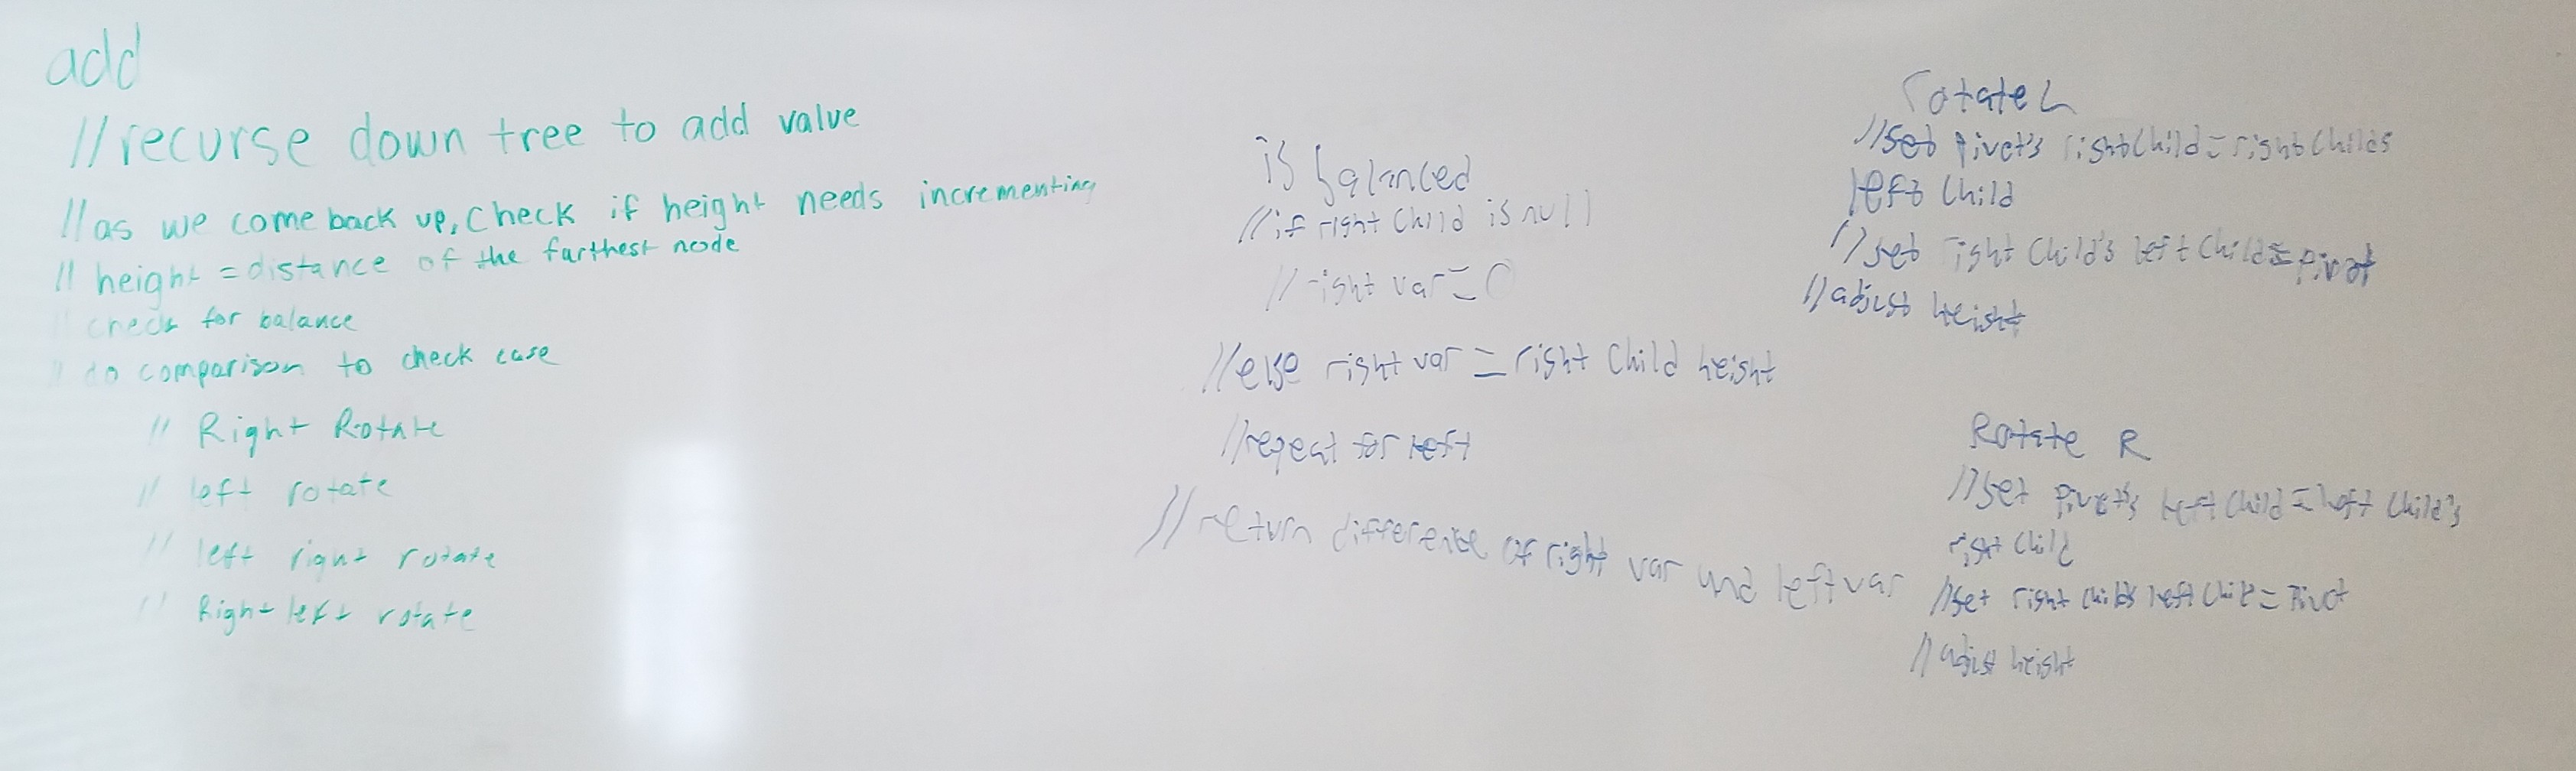 add
//recurse down tree to add value
//as we come back up, check if height needs incrementing
// height = distance of the furthest node
// check for balance
// do comparison to check case
// Right Rotate
// left rotate
// left right rotate
// Right left rotate
is balanced
//if right child is null
//right var = 0
//else right var = right child height
//repeat for left
//return difference of right var and left var
rotate L
//set pivot's rightchild = right childs
left child
//set right child's left child = pivot
//adjust height
Rotate R
//set pivot's left child = left child's
right child
//set right childs left child = Pivot
//adjust height